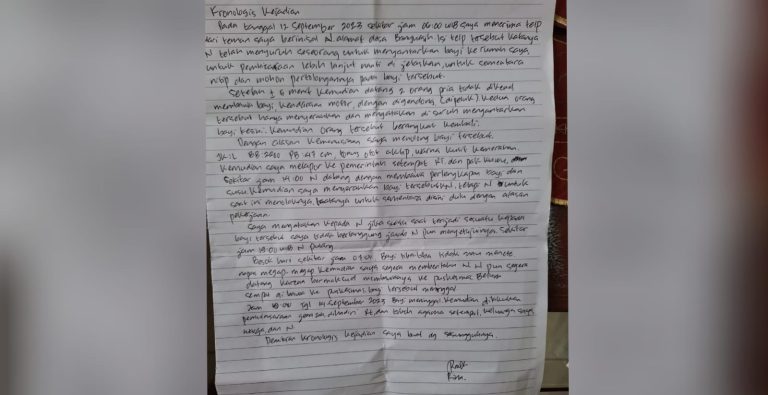 Kronologis Kejadian
Pada tanggal 12 September 2023 sekitar jam 06:00 WIB saya menerima telp
dari teman saya berinisial N. alamat desa Bangunsih Isi telp tersebut katanya
N telah menyuruh seseorang untuk mengantarkan bayi ke rumah saya
untuk pembicaraan lebih lanjut nanti di jelaskan, untuk sementara
nitip dan mohon pertolongannya pada bayi tersebut.
Setelah ± 5 menit kemudian datang 2 orang pria tidak dikenal
membawa bayi, kendaraan motor, dengan digendong (dipeluk). Kedua orang
tersebut hanya menyerahkan dan mengatakan di suruh mengantarkan
bayi kesini. Kemudian orang tersebut berangkat kembali.
Dengan alasan kemanusiaan saya menolong bayi tersebut.
JK: L BB 2400 PB: 47 cm, tonus otot aktip, warna kulit kemerahan.
Kemudian saya melapor ke pemerintah setempat RT. dan pak
Sekitar jam 14.00 N datang dengan membawa perlengkapan bayi dan
susu. Kemudian saya menyerahkan bayi tersebut tetapi N untuk
saat ini menolaknya, katanya untuk sementara disini dulu dengan alasan
pekerjaan.
Saya mengatakan kepada N jika suatu saat terjadi sesuatu kepada
bayi tersebut saya tidak bertanggung jawab N pun menyetujuinya sekitar
jam 18.00 WIB N pulang.
Besok hari sekitar jam 07.00 Bayi tiba-tiba tidak mau
napas megap-megap kemudian saya segera memberitahu N. N pun segera
datang karena bermaksud membawanya ke puskesmas Belum
sempat di bawa ke puskesmas bayi tersebut meninggal
Jam 10.00 Tgl 14 September 2023 Bayi meninggal kemudian dilakukan
pemulasaraan jenazah dihadiri Rt. dan tokoh agama setempat, keluarga saya
warga dan N
Demikian kronologis kejadian saya buat dg sesungguhnya.